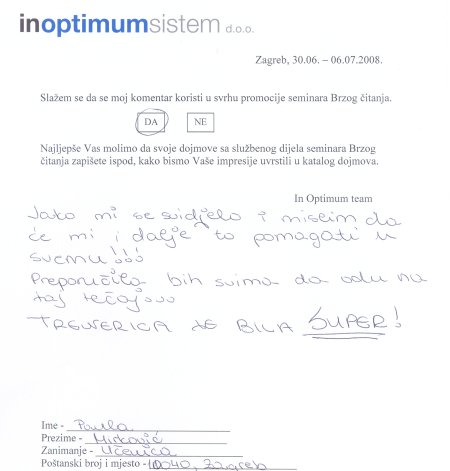 inoptimumsistem d.o.o.
Zagreb, 30.06. – 06.07.2008.
Slažem se da se moj komentar koristi u svrhu promocije seminara Brzog čitanja.
DA NE
Najljepše Vas molimo da svoje dojmove sa službenog dijela seminara Brzog
čitanja zapišete ispod, kako bismo Vaše impresije uvrstili u katalog dojmova.
In Optimum team
Jako mi se svidjelo i mislim da
će mi i dalje to pomagati u
svemu!!!
Preporučila bih svima da odu na
taj tečaj...
TRENERICA JE BILA SUPER!
Ime - Paula
Prezime - Mirković
Zanimanje - Učenica
Poštanski broj i mjesto - 10040, Zagreb